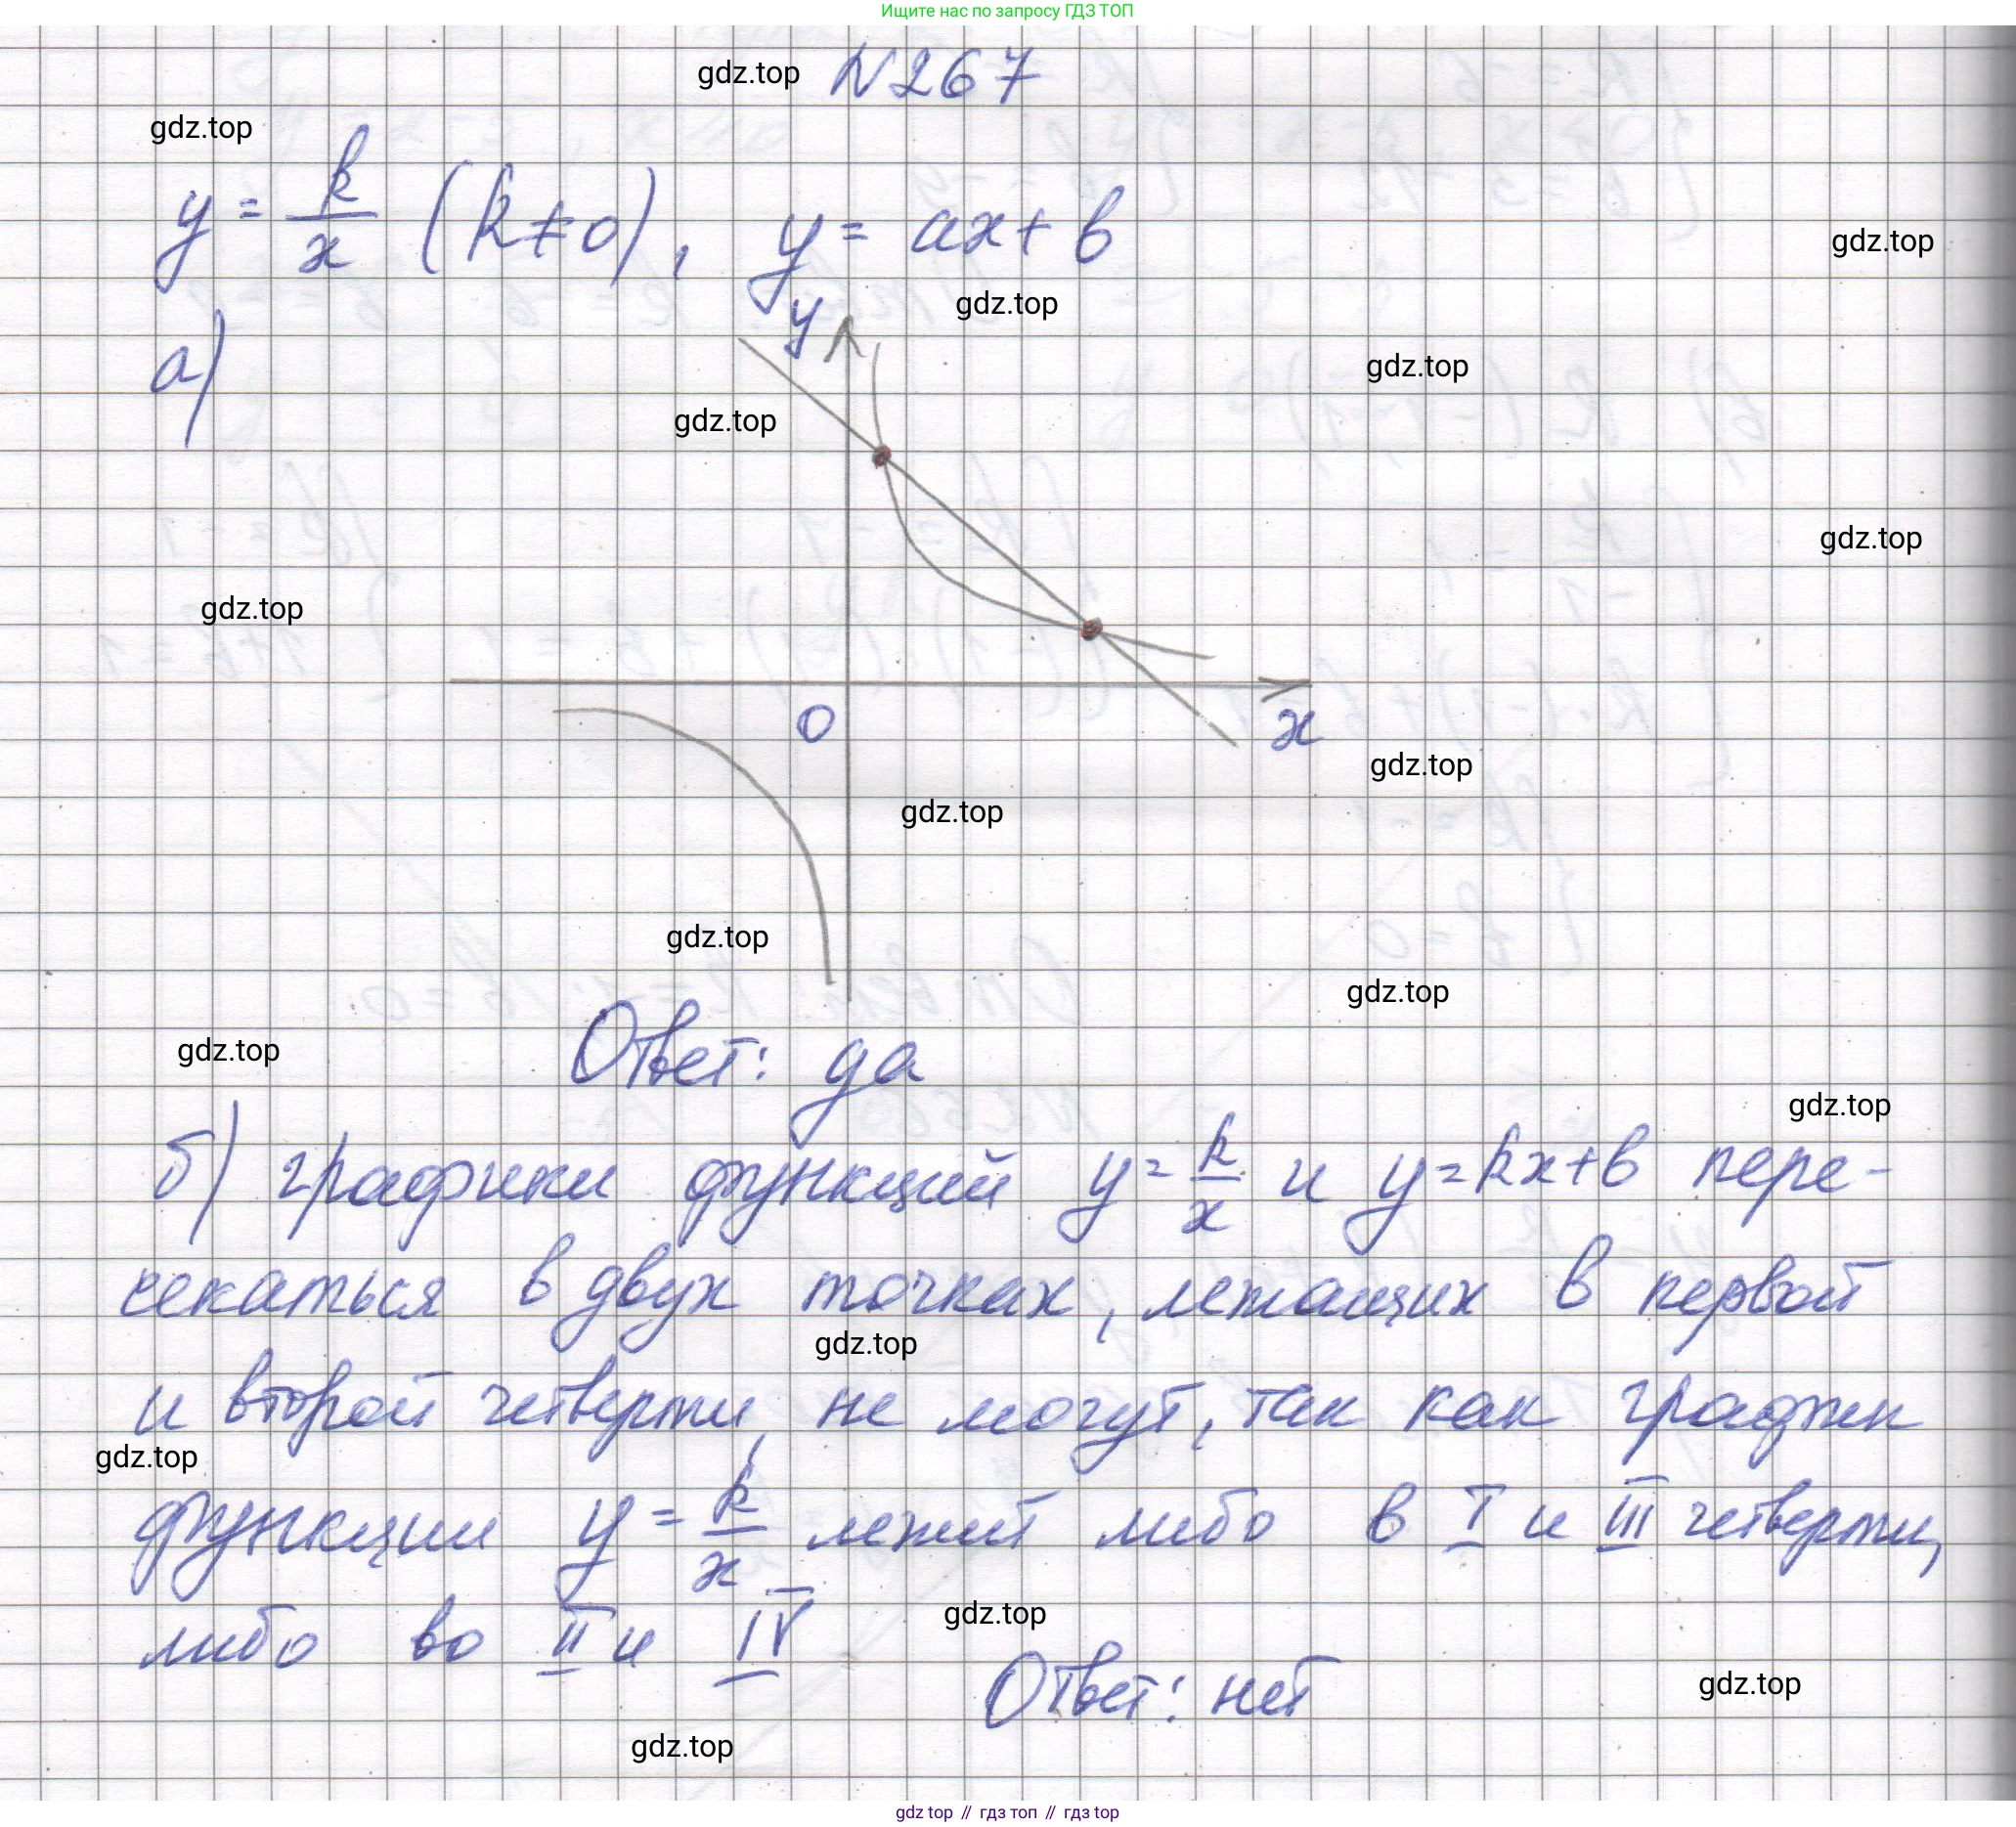 Ищите нас по запросу ГДЗ ТОП
gdz.top N267
gdz.top
y = k/x (k≠0), y = ax + b
gdz.top
y gdz.top
а)
gdz.top
gdz.top
gdz.top
gdz.top
0 x
gdz.top
gdz.top
gdz.top
gdz.top
Ответ: да
gdz.top
gdz.top
б) графики функций y = k/x и y = kx + b пере-
секаться в двух точках, лежащих в первой
gdz.top
и второй четверти, не могут, так как график
gdz.top
функции y = k/x лежит либо в I и III четверти,
либо во II и IV
gdz.top
Ответ: нет
gdz.top
gdz.top
gdz top // гдз топ // гдз top